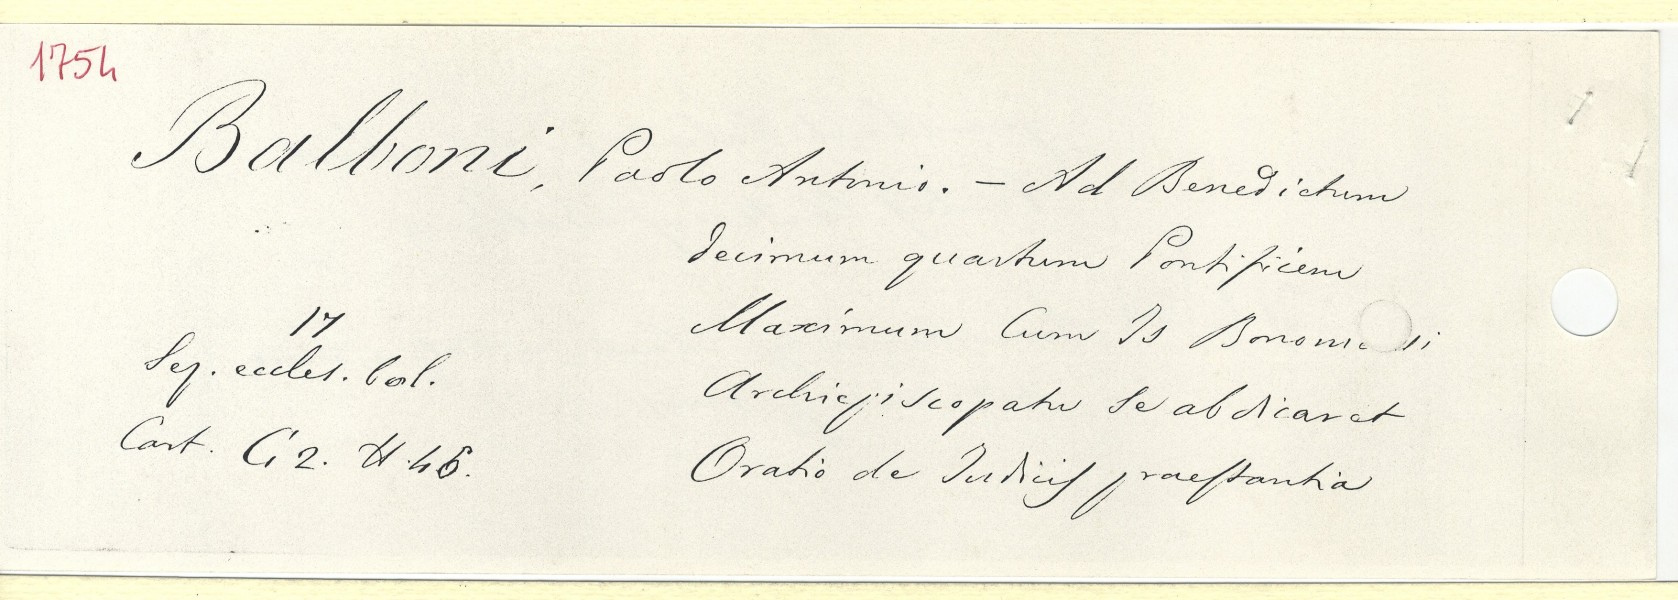 1754
Balboni, Paolo Antonio. - Ad Benedictum
decimum quartum Pontificem
Maximum Cum Is Bonon
Archiepiscopatu se abdicaret
Oratio de Iudicis praestantia
17
Sez. eccles. bol.
Cart. G 2. N. 46.